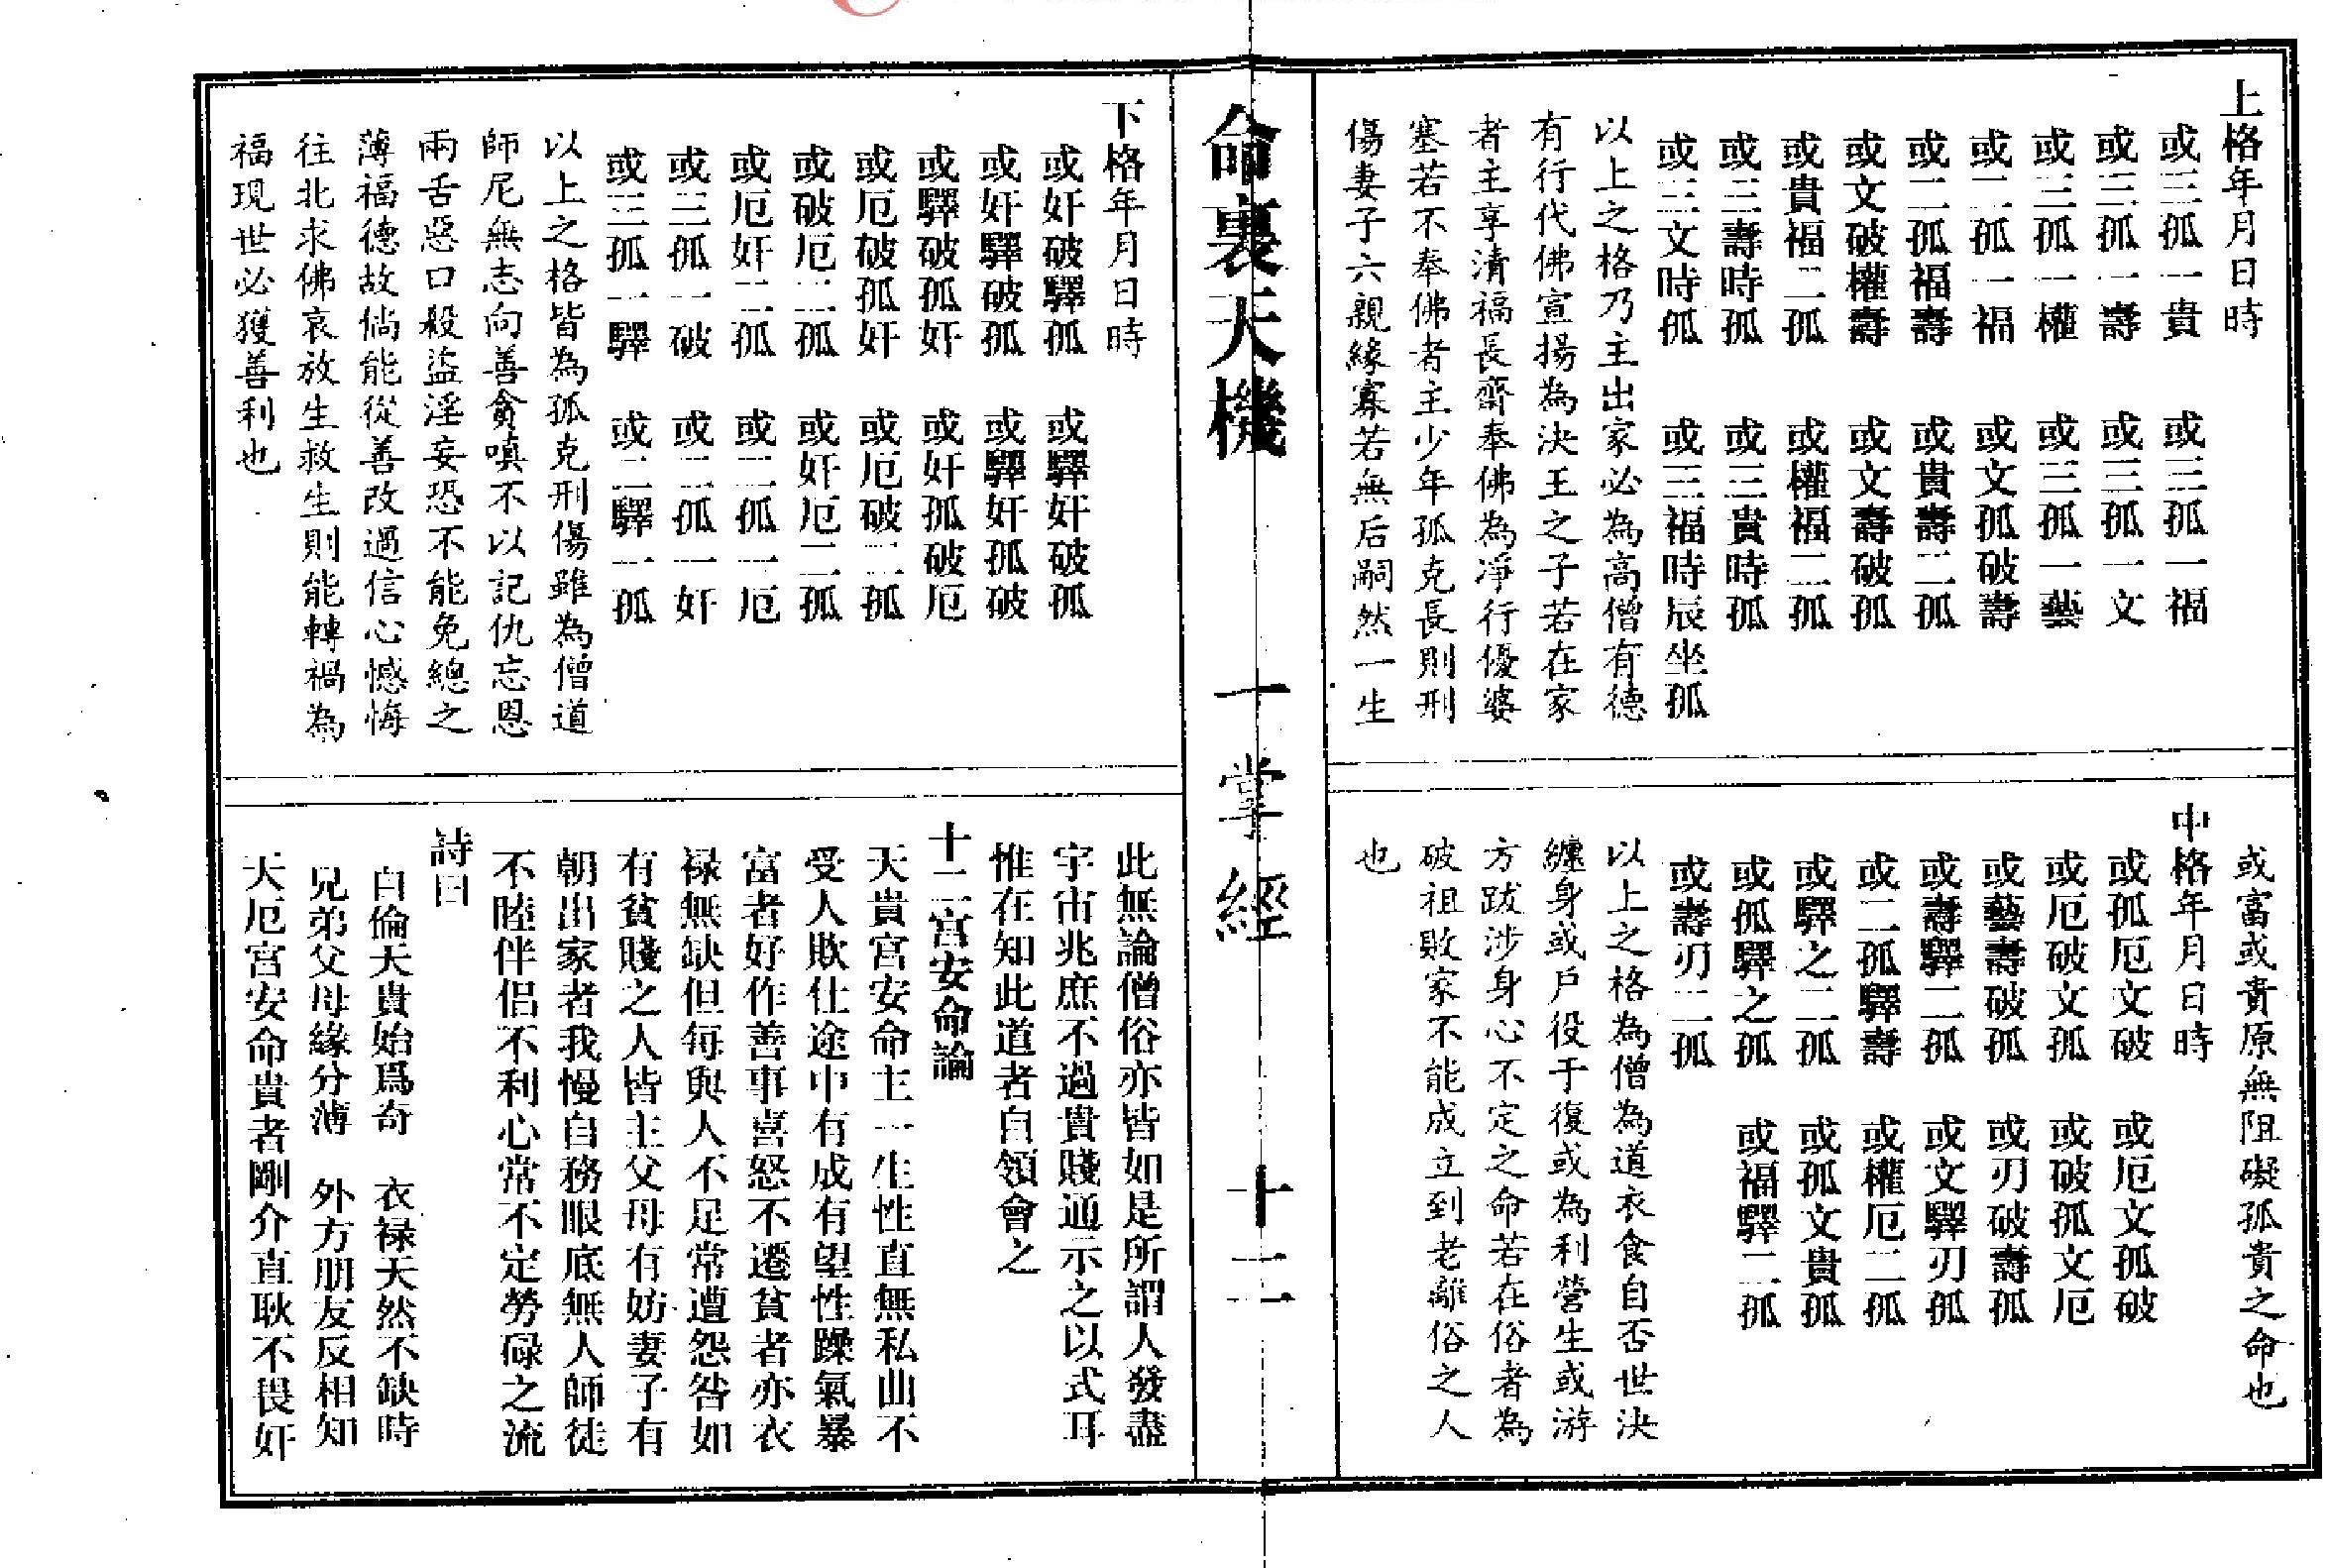 上格年月日時
或三孤一貴 或三孤一福
或三孤一壽 或三孤一文
或三孤一權 或三孤一藝
或二孤一福 或文孤破壽
或二孤福壽 或貴壽二孤
或文破權壽 或文壽破孤
或貴福二孤 或權福二孤
或三壽時孤 或三貴時孤
或三文時孤 或三福時辰坐孤
以上之格乃主出家必為高僧有德
有行代佛宣揚為決王之子若在家
者主享清福長齋奉佛為淨行優婆
塞若不奉佛者主少年孤克長則刑
傷妻子六親緣寡若無后嗣然一生
或富或貴原無阻礙孤貴之命也
中格年月日時
或孤厄文破 或厄文孤破
或厄破文孤 或破孤文厄
或藝壽破孤 或刃破壽孤
或壽驛二孤 或文驛刃孤
或二孤驛壽 或權厄二孤
或驛之二孤 或孤文貴孤
或孤驛之孤 或福驛二孤
或壽刃二孤
以上之格為僧為道衣食自否世決
纏身或戶役于復或為利營生或游
方跋涉身心不定之命若在俗者為
破祖敗家不能成立到老離俗之人
也
命裏天機 一掌經 十二
下格年月日時
或奸破驛孤 或驛奸破孤
或奸驛破孤 或驛奸孤破
或驛破孤奸 或奸孤破厄
或厄破孤奸 或厄破二孤
或破厄二孤 或奸厄二孤
或厄奸二孤 或三孤一厄
或三孤一破 或三孤一奸
或三孤一驛 或三驛一孤
以上之格皆為孤克刑傷雖為僧道
師尼無志向善貪嗔不以記仇忘恩
兩舌惡口殺盜淫妄恐不能免總之
薄福德故倘能從善改過信心憾悔
往北求佛哀放生救生則能轉禍為
福現世必獲善利也
此無論僧俗亦皆如是所謂人發盡
宇宙兆庶不過貴賤通示之以式耳
惟在知此道者自領會之
十二宮安命論
天貴宮安命主一生性直無私曲不
受人欺仕途中有成有望性躁氣暴
富者好作善事喜怒不遷貧者亦衣
祿無缺但每與人不足常遭怨咎如
有貧賤之人皆主父母有妨妻子有
朝出家者我慢自務眼底無人師徒
不睦伴侶不利心常不定勞碌之流
詩曰
自倫天貴始爲奇 衣祿天然不缺時
兄弟父母緣分薄 外方朋友反相知
天厄宮安命貴者剛介直耿不畏奸